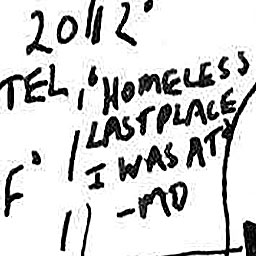 2011 2'
TEL, "HOMELESS
LAST PLACE
I WAS AT"
F' -MD